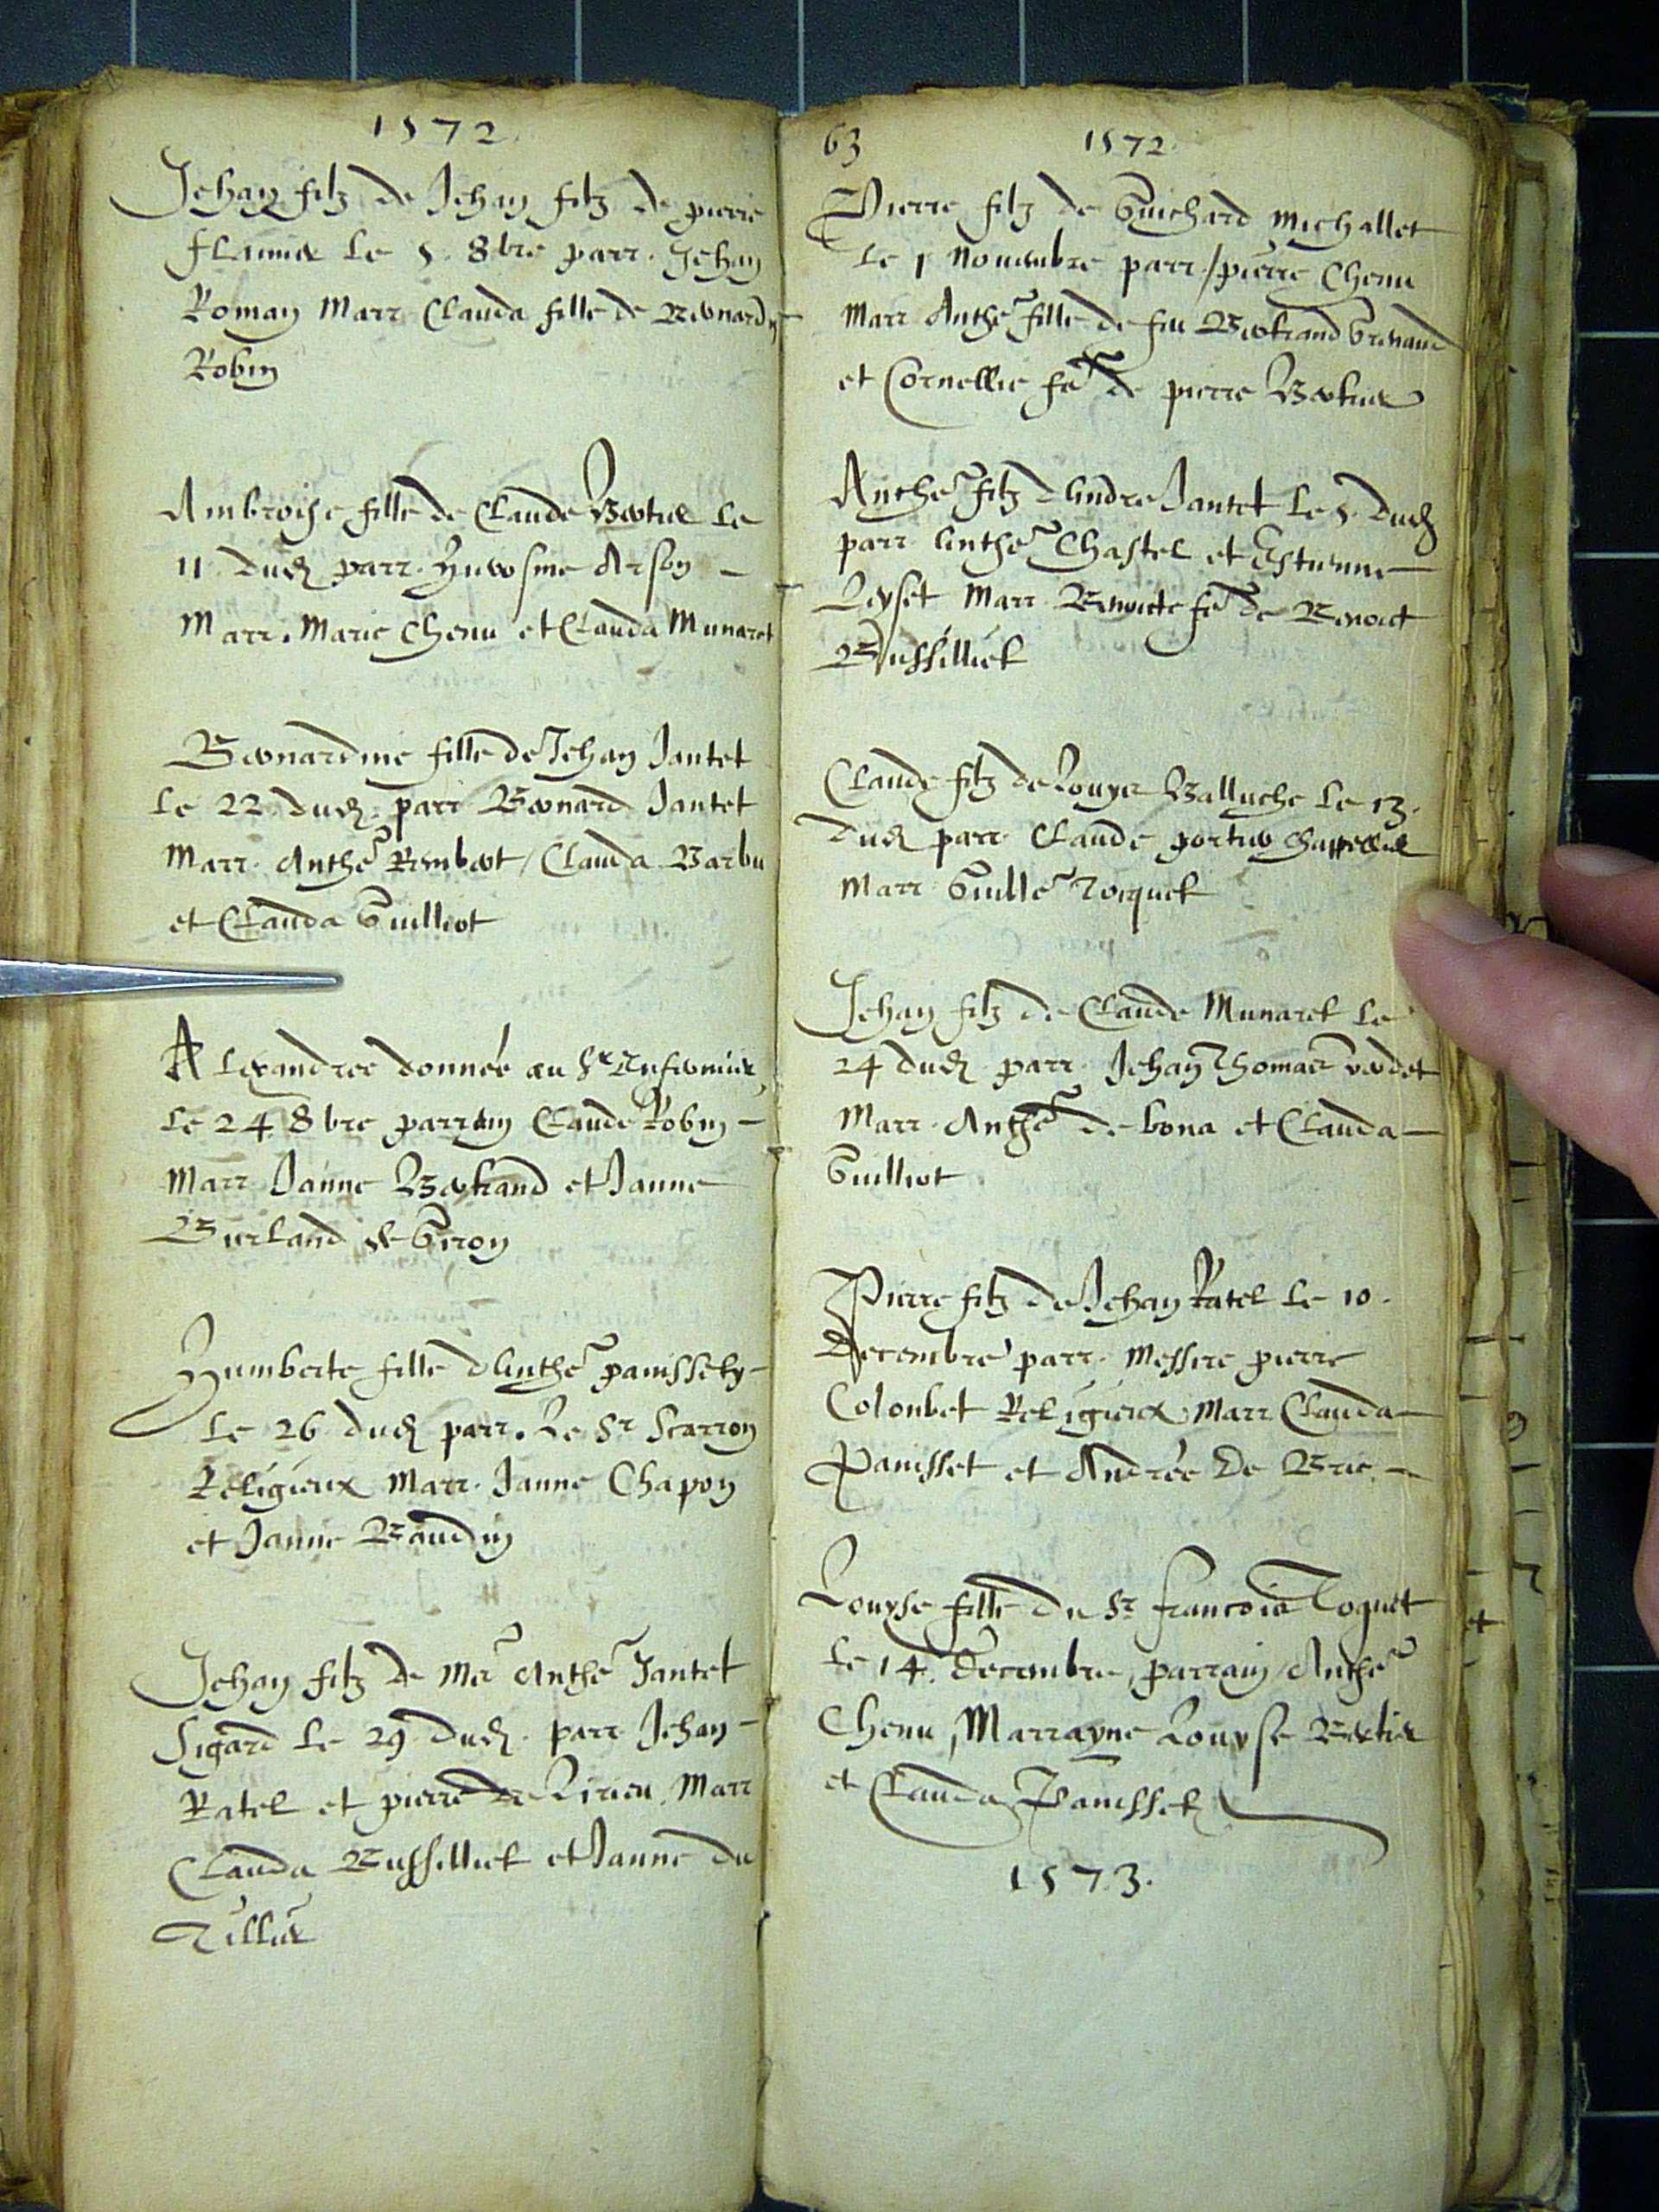 1572.
Jehan filz de Jehan filz de pierre
le 5. 8bre parr. Jehan
Roman Marr. Clauda fille de Bernard
Robin
Ambroise fille de Claude Bertier le
11 dud parr. Arson
Marr. Marie Chenu et Clauda Munaret
Bernardine fille de Jehan Jantet
le 22 dud. parr Bernard Jantet
Marr. Anthe Rembert / Clauda Barbu
et Clauda Guilliot
Alexandree donnée au Sr
le 24 8bre parrain Claude Robin
Marr Janne Bertrand et Janne
Burland de Giron
Humberte fille d'Anthe
le 26 dud parr. Le Sr Scarron
Religieux Marr. Janne Chapon
et Janne Baudin
Jehan filz de Me Anthe Jantet
Sigard le 29 dud. parr Jehan
Ratel et pierre de Lirieu Marr
Clauda Bussilliet et Janne du
Tillier
63 1572.
Pierre filz de Guichard Michallet
le 1 Nouembre parr. / pierre Chenu
Marr Anthe fille de feu Bertrand
et Cornellie fe de pierre Bertier
Anthe filz d'Andre Jantet le 5. dud
parr Anthe Chastel et Estienne
Leyset Marr Benoite fe de Benoict
Bussilliet
Claude filz de Louys Balluche le 13.
dud parr. Claude portier
Marr Guille
Jehan filz de Claude Munaret le
24 dud parr. Jehan Thomas verdet
Marr. Anthe de bona et Clauda
Guilliot
Pierre filz de Jehan Ratel le 10.
decembre parr. Messire pierre
Colonbet Religieux Marr Clauda
Panisset et Andrée De Brie
Louyse fille du Sr francois Coquet
le 14. decembre, parrain / Anthe
Chenu, Marrayne Louyse Bertier
et Clauda Panisset
1573.